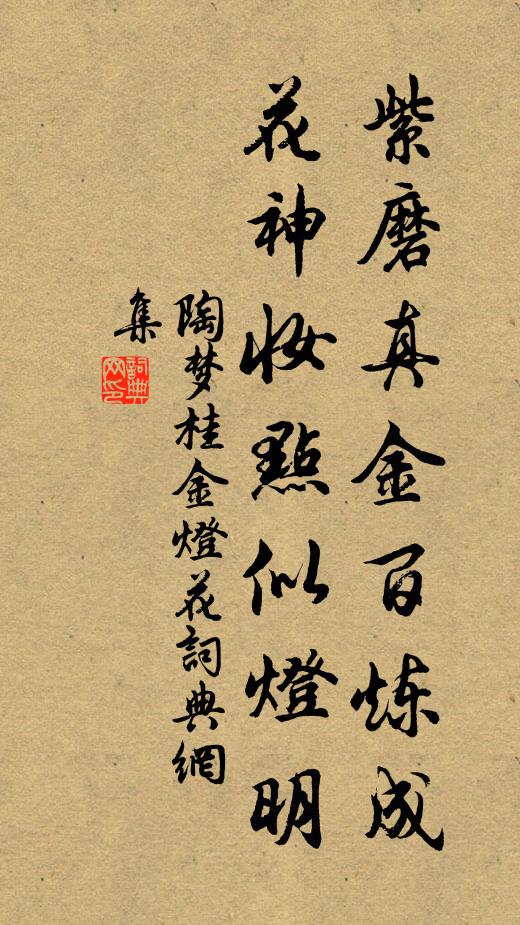 紫磨真金百炼成
花神妆點似燈明
陶梦桂金燈花詞典網
集
詞典网印